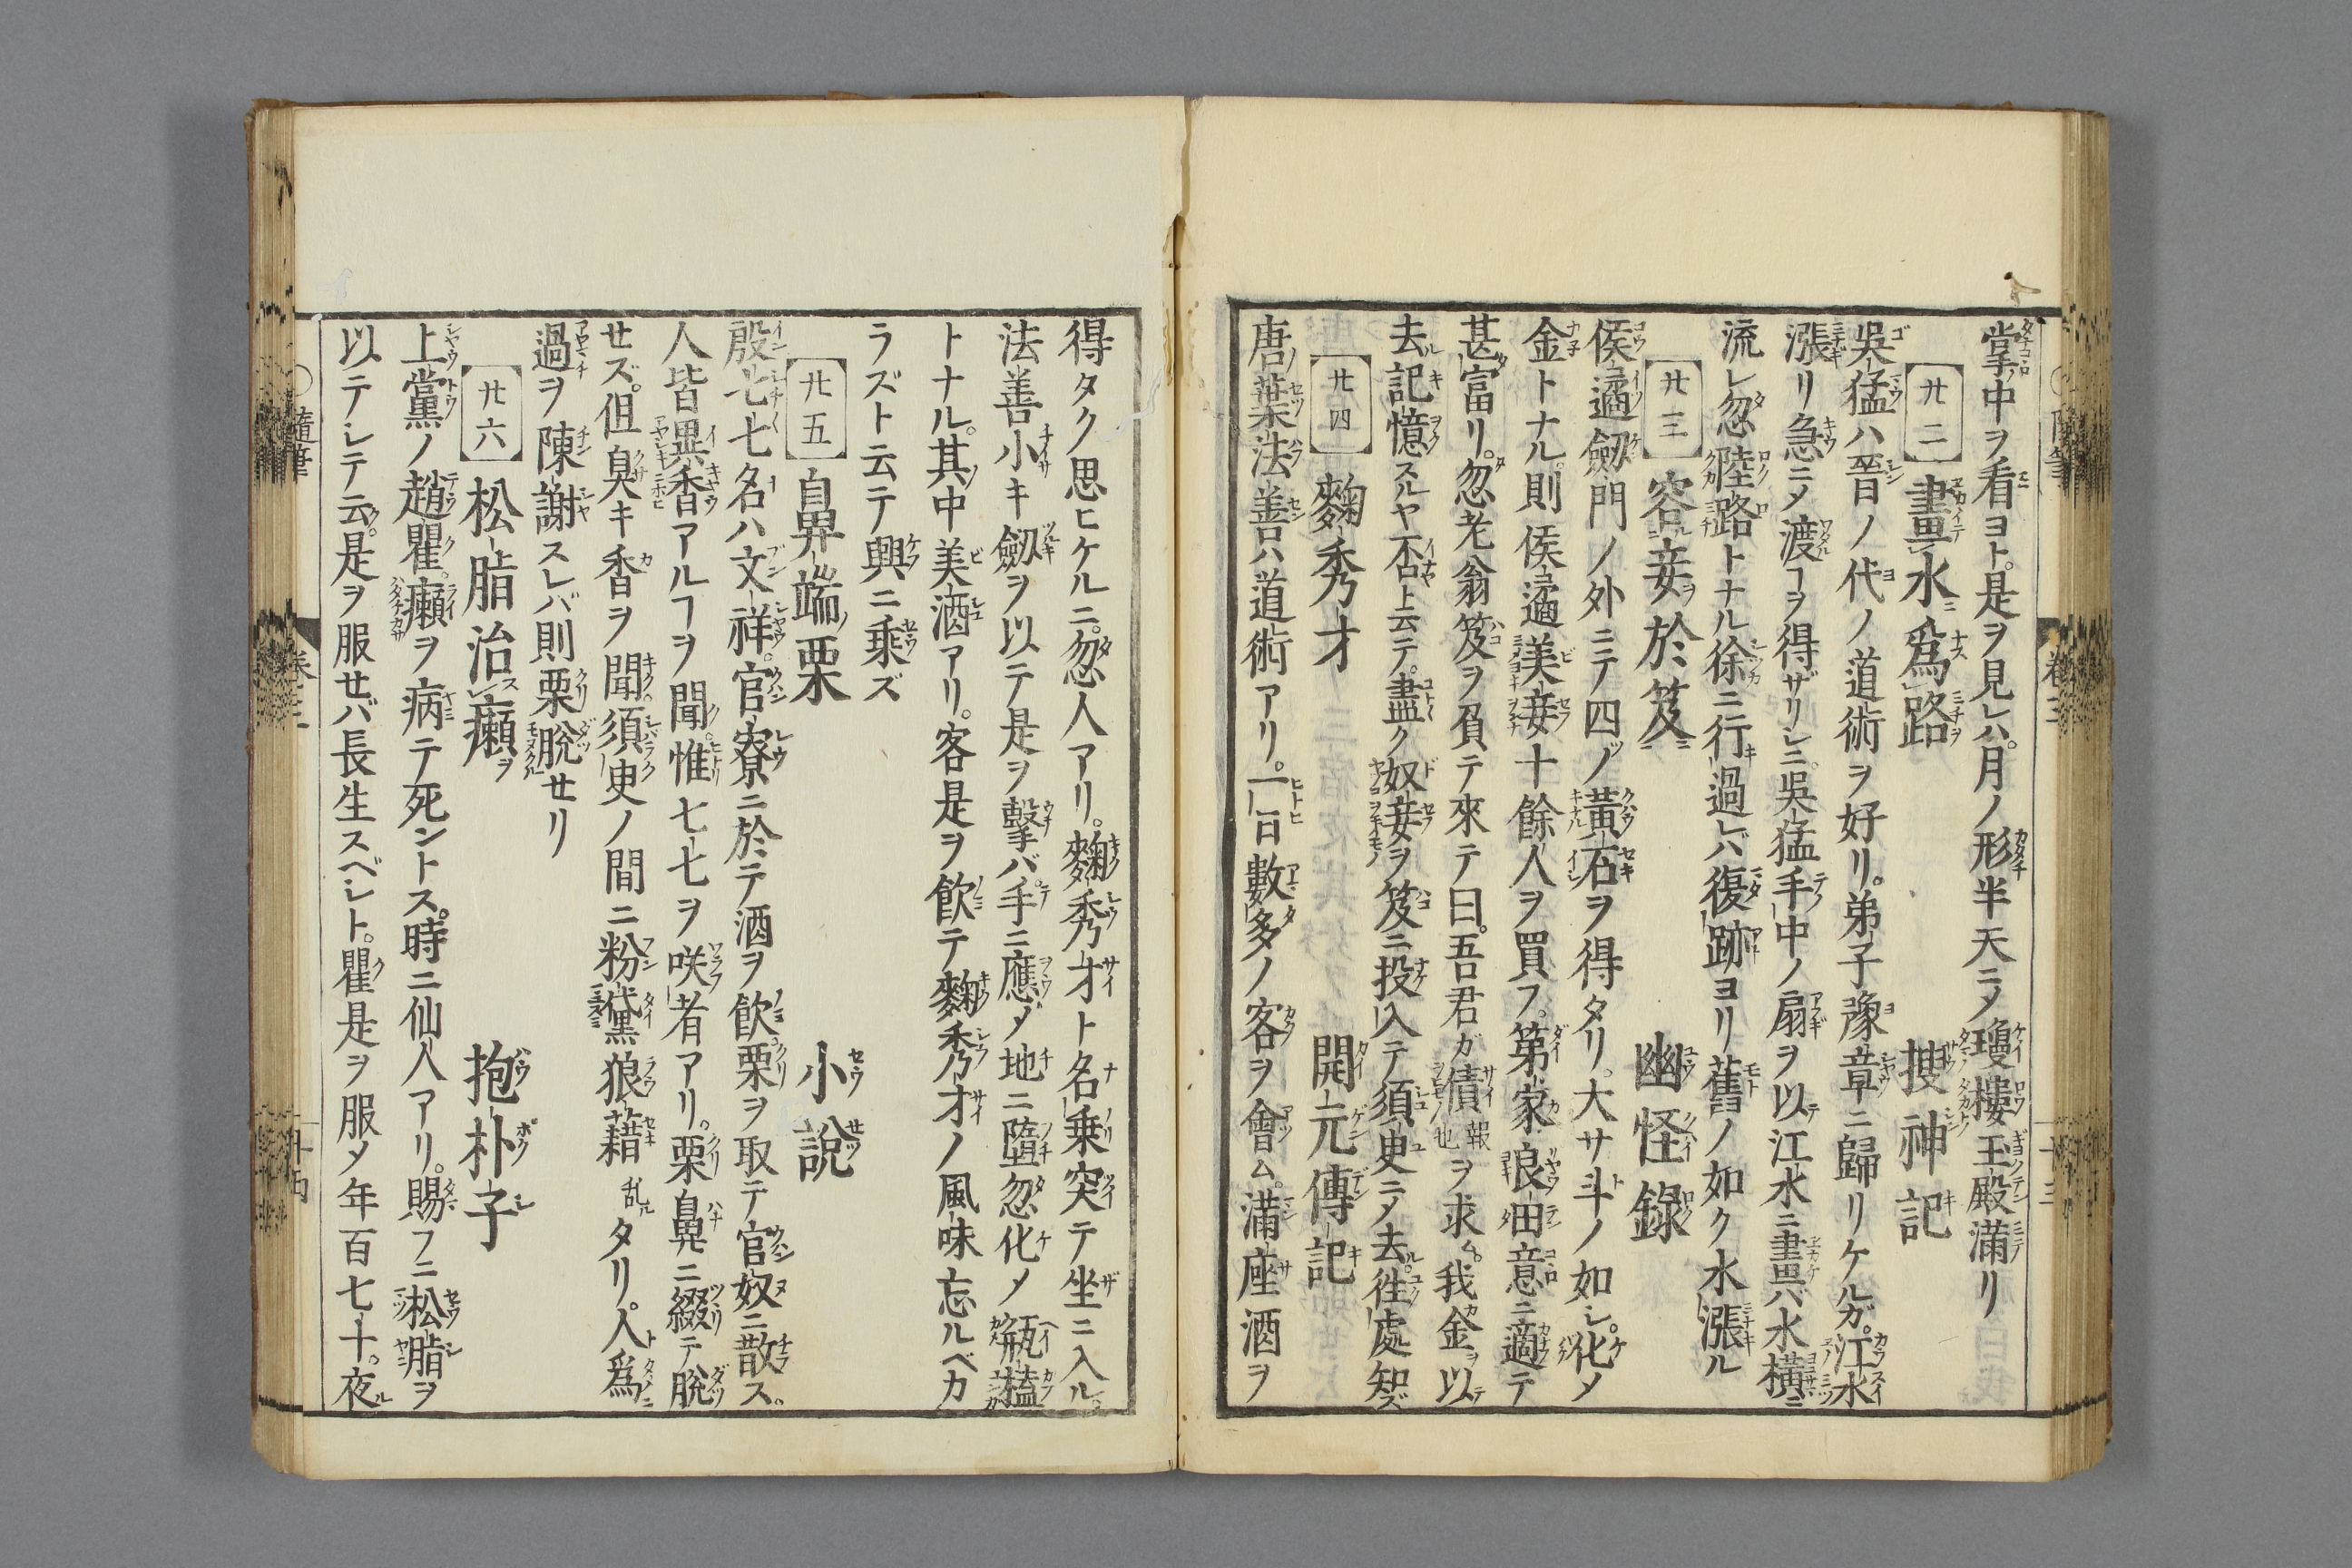 掌中ヲ看ヨト。是ヲ見レバ。月ノ形半天ニ〆瓊樓玉殿滿リ
廿二 畫水爲路 搜神記
吳猛ハ晉ノ代ノ道術ヲ好リ。弟子豫章ニ歸リケルガ。江水
漲リ急ニ〆渡ヿヲ得ザリシニ。吳猛手中ノ扇ヲ以江水ニ畫バ水橫ニ
流レ忽陸路トナル徐ニ行過レバ復跡ヨリ舊ノ如ク水漲ル
廿三 容妾於笈 幽怪錄
侯遹劔門ノ外ニテ四ツノ黃石ヲ得タリ。大サ斗ノ如シ。化〆
金トナル。則侯遹美妾十餘人ヲ買フ。第家良田意ニ適テ
甚富リ。忽老翁笈ヲ負テ來テ曰。吾君ガ債報也ヲ求ム。我金ヲ以テ
去ル記憶スルヤ否ト云テ。盡ク奴妾ヲ笈ニ投入テ須臾ニ〆去ル。徃處知ズ
廿四 麴秀才 開元傳記
唐ノ葉法善ハ道術アリ。一日數多ノ客ヲ會ム。滿座酒ヲ
得タク思ヒケルニ。忽人アリ。麴秀才ト名乗突テ坐ニ入ル。
法善小キ劔ヲ以テ是ヲ擊バ手ニ應〆地ニ墮忽化〆瓶榼
トナル。其中美酒アリ。客是ヲ飮テ麴秀才ノ風味忘ルベカ
ラズト云テ興ニ乗ズ
廿五 鼻端栗 小說
殷七七名ハ文祥。官寮ニ於テ酒ヲ飮。栗ヲ取テ官奴ニ散ス。
人皆異香アルヿヲ聞ク。惟七七ヲ咲者アリ。栗鼻ニ綴テ脫
せズ。但臭キ香ヲ聞。須臾ノ間ニ粉黛狼藉乱ルタリ。人爲
過ヲ陳謝スレバ則栗脫せリ
廿六 松脂治癩 抱朴子
上黨ノ趙瞿。癩ヲ病テ死ントス。時ニ仙人アリ。賜フニ松脂ヲ
以テシテ云。是ヲ服せバ長生スベシト。瞿是ヲ服〆年百七十。夜
隨筆 卷三 十三
隨筆 卷三